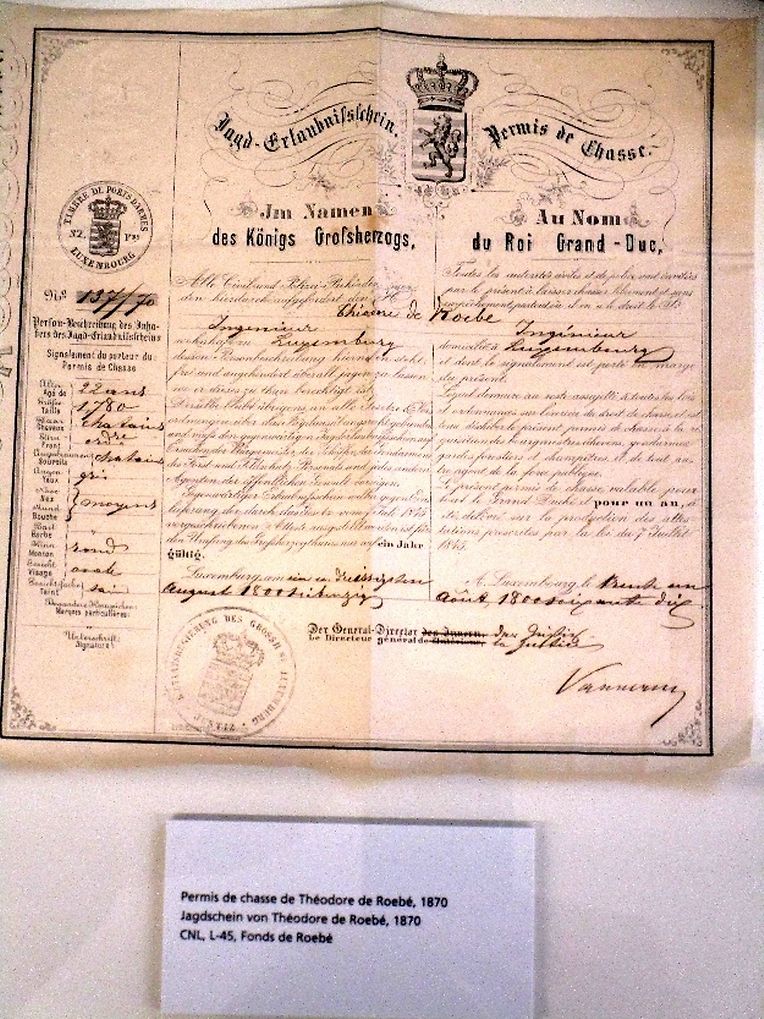 Jagd-Erlaubnißschein.
Permis de Chasse.
Im Namen
des Königs Großherzogs,
Au Nom
du Roi Grand-Duc,
TIMBRE DE PORTS D'ARMES
LUXEMBOURG
No. 137/70
Person-Beschreibung des Inha-
bers des Jagd-Erlaubnißscheins
Signalement du porteur du
Permis de Chasse
Alter
Agé de 22 ans
Größe
Taille 1780
Haar
Cheveux chatains
Stirn
Front ordre
Augenbraunen
Sourcils chatains
Augen
Yeux gris
Nase
Nez
Mund
Bouche moyens
Bart
Barbe
Kinn
Menton rond
Gesicht
Visage ovale
Gesichtsfarbe
Teint sain
Besondere Kennzeichen:
Marques particulières:
Unterschrift:
Signature:
Alle Civil und Polizei-Behörden
den hierdurch aufgefordert den H
Théodore de Roebé
Ingenieur
wohnhaft zu Luxemburg
dessen Personbeschreibung hierneben steht
frei und ungehindert überall jagen zu lassen
wo er dieses zu thun berechtigt ist.
Derselbe bleibt übrigens an alle Gesetze &
ordnungen über das Jagdausübungsrecht gebunden
und muß den gegenwärtigen Jagderlaubnißschein auf
Ersuchen der Bürgermeister, der Schöffen, der Gendarmen
des Forst- und Feldschutz Personals und jedes andern
Agenten der öffentlichen Gewalt vorzeigen.
Gegenwärtiger Erlaubnißschein
lieferung der durch das Gesetz vom 7 Juli 1845
vorgeschriebenen Atteste ausgestellt worden ist für
den Umfang des Großherzogthums nur auf ein Jahr
gültig.
Luxemburg, am ein u. dreissigsten
August 1800 siebenzig
Toutes les autorités civiles et de police sont invitées
par le présent à laisser chasser librement et sans
empêchement partout où il en a le droit le Sr
Ingénieur
domicilié à Luxembourg
et dont le signalement est porté en marge
du présent.
Lequel demeure au reste assujetti à toutes les lois
et ordonnances sur l'exercice du droit de chasse, et est
tenu d'exhiber le présent permis de chasse à la ré-
quisition des bourgmestres, échevins, gendarmes
gardes forestiers et champêtres, et de tout au-
tre agent de la force publique.
Le présent permis de chasse valable pour
tout le Grand Duché et pour un an, a
été délivré sur la production des attes-
tations prescrites par la loi du 7 Juillet
1845.
A Luxembourg, le trente un
Août, 1800 soixante dix
Der General-Director des Innern. der Justiz
Le Directeur général de l'Intérieur. la Justice
STAATSREGIERUNG DES GROSSH. LUXEMBURG
JUSTIZ
Permis de chasse de Théodore de Roebé, 1870
Jagdschein von Théodore de Roebé, 1870
CNL, L-45, Fonds de Roebé